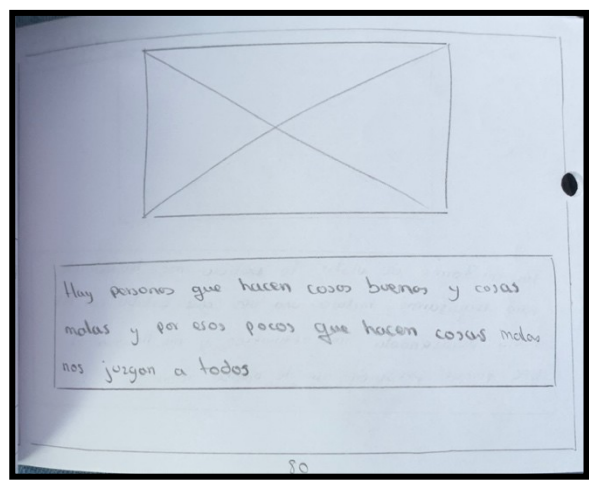 Hay personas que hacen cosas buenas y cosas
malas y por esos pocos que hacen cosas malas
nos juzgan a todos
80